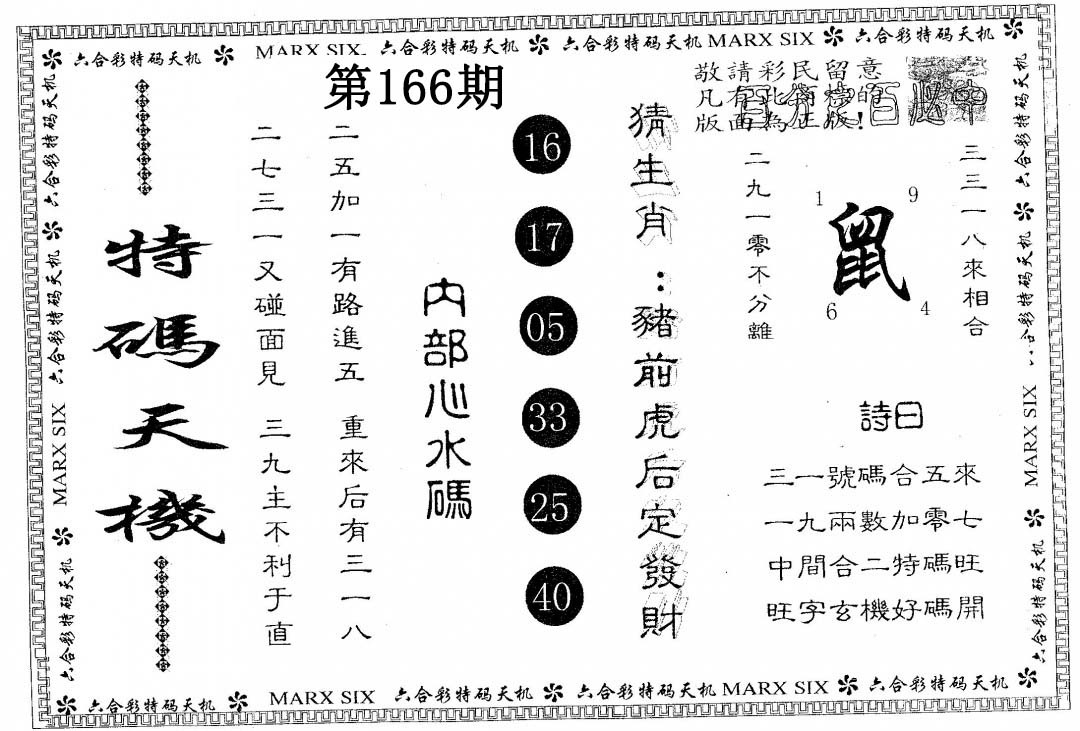 六合彩特码天机 MARX SIX 六合彩特码天机 六合彩特码天机 MARX SIX 六合彩特码天机
第166期
敬請彩民留意
凡有此防僞的
版面為正版!
百發百中
三三一八來相合
二九一零不分離
1
9
鼠
6
4
詩曰
三一號碼合五來
一九兩數加零七
中間合二特碼旺
旺字玄機好碼開
猜生肖：豬前虎后定發財
16
17
05
33
25
40
内部心水碼
二五加一有路進五 重來后有三一八
二七三一又碰面見 三九主不利于直
特碼天機
六合彩特码天机 六合彩特码天机 MARX SIX 六合彩特码天机
六合彩特码天机 六合彩特码天机 MARX SIX 六合彩特码天机
MARX SIX 六合彩特码天机 六合彩特码天机 MARX SIX 六合彩特码天机